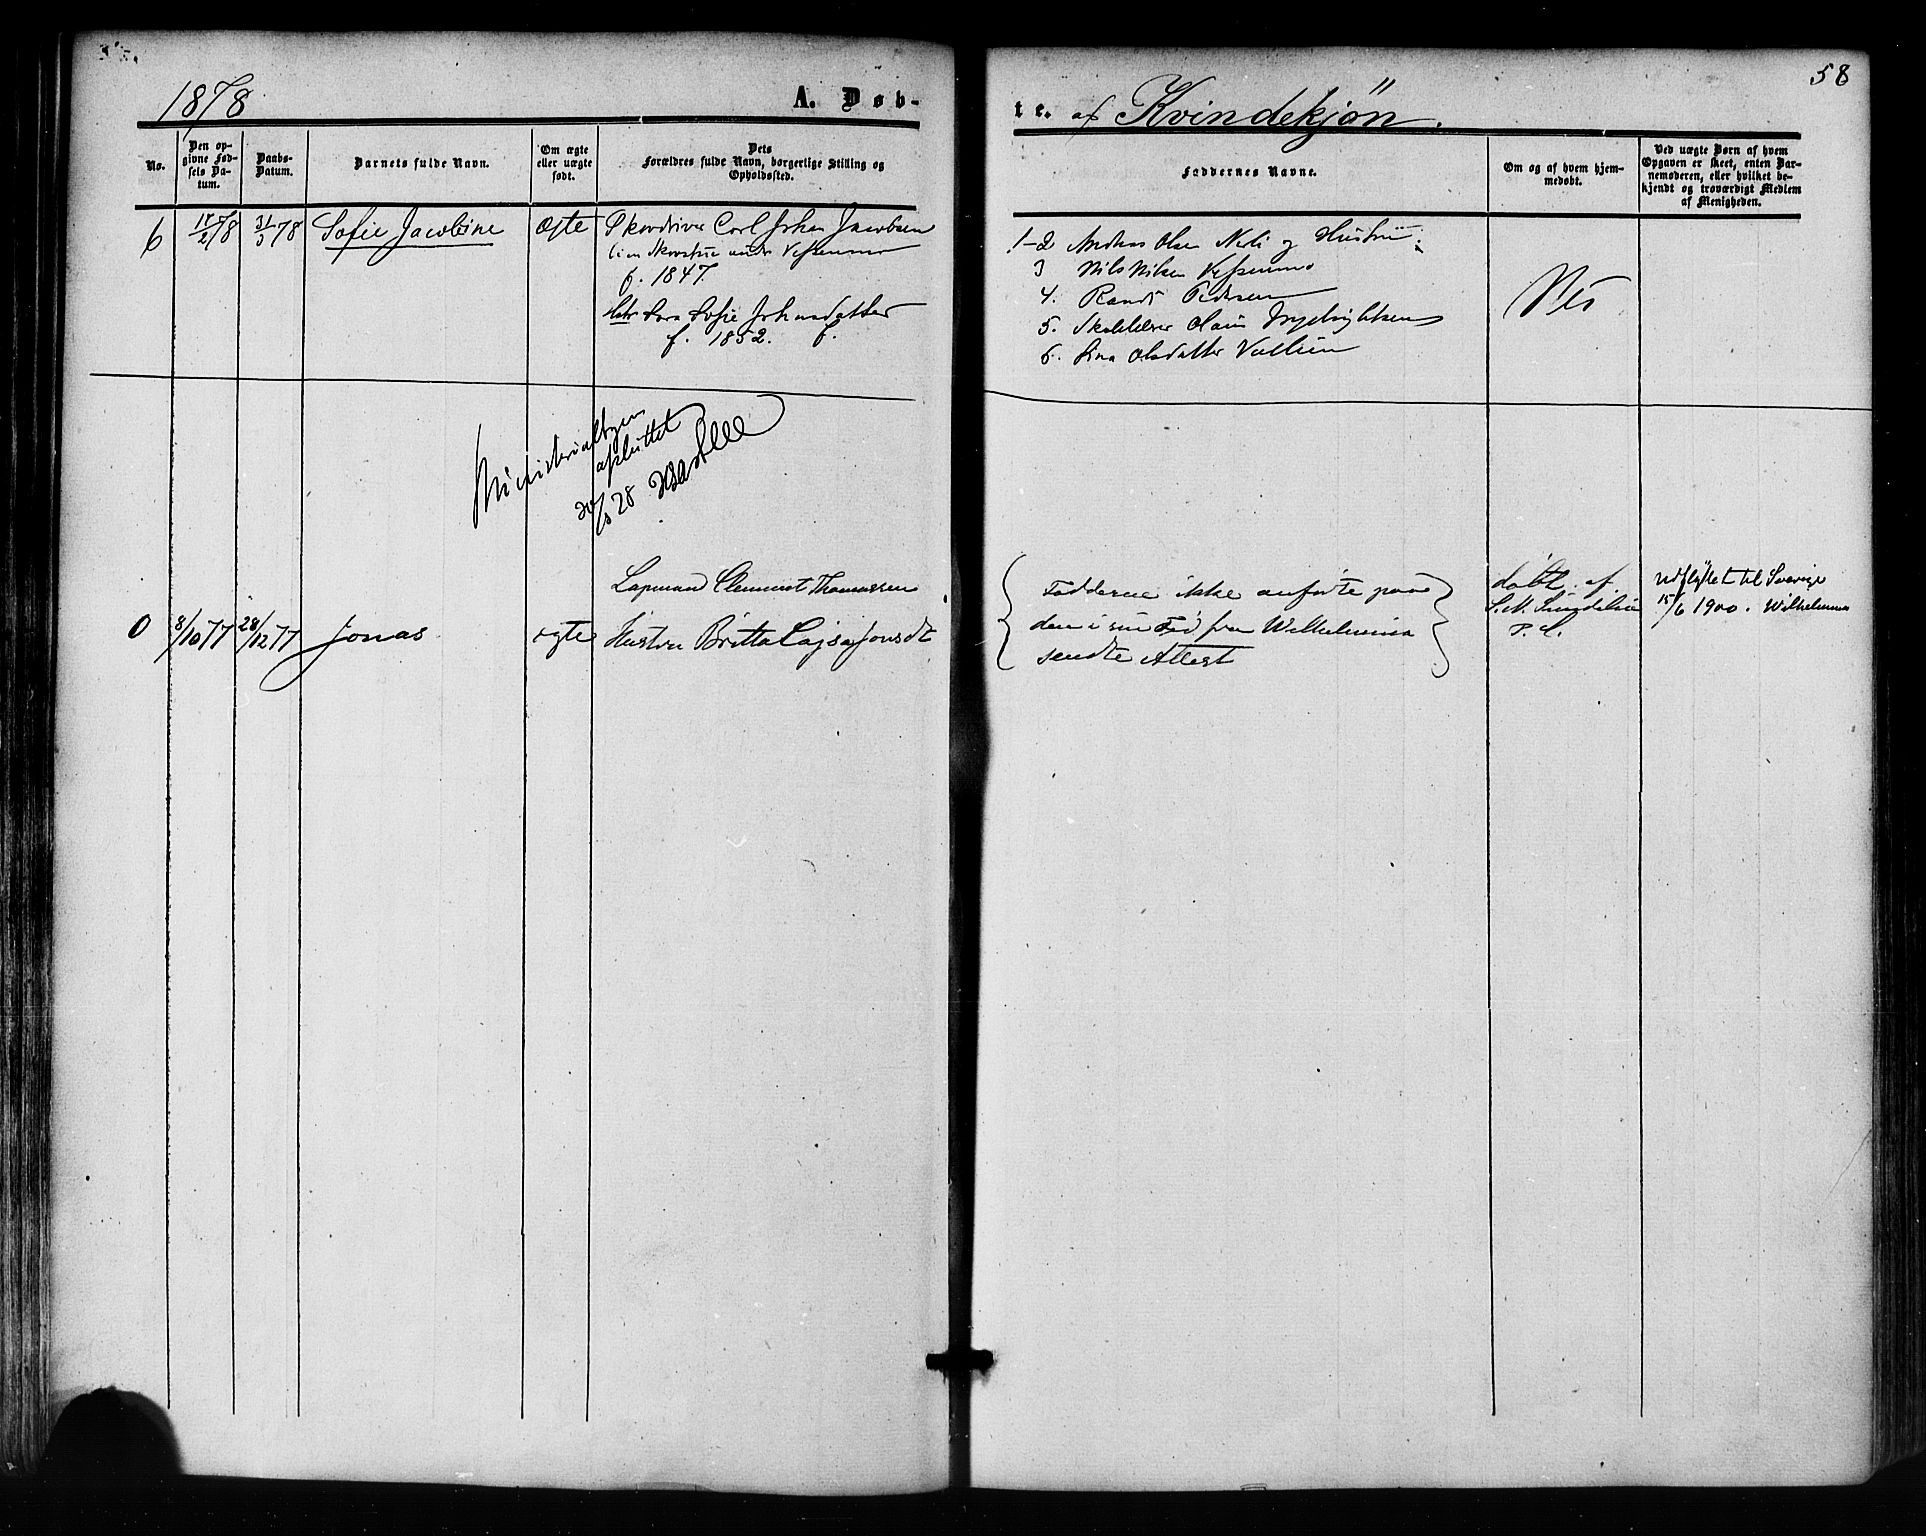 58
1878
A. Døb-
te. af Kvindekjøn.
No.
Den op-
givne Fød-
sels Da-
tum.
Daabs-
Datum.
Barnets fulde Navn.
Om ægte
eller uægte
født.
Dets
Forældres fulde Navn, borgerlige Stilling og
Opholdssted.
Faddernes Navne.
Om og af hvem hjem-
medøbt.
Ved uægte Børn af hvem
Opgaven er skeet, enten Bar-
nemoderen, eller hvilket be-
kjendt og troværdigt Medlem
af Menigheden.
6
17/2 78
31/3 78
Sofie Jacobine
Ægte
Carl Johan Jacobsen
under
f. 1847.
Sara Sofie Johansdatter
f. 1852. f.
1-2 Andreas Olsen og Hustru
3 Nils Nilsen
4. Pedersen
5. Ingebrigtsen
6. Lina Olsdatter
Nei
Ministerialbogen
afsluttet
28
0
8/10 77
28/12 77
Jonas
ægte
Lapmand Clemmet Thomassen
Hustru Britta Cajsa Jonsdt
Fadderne ikke anførte paa
den i sin Tid fra Wilhelmina
sendte Attest
døbt af
P. L.
Udflyttet til Sverige
15/6 1900. Wilhelmina